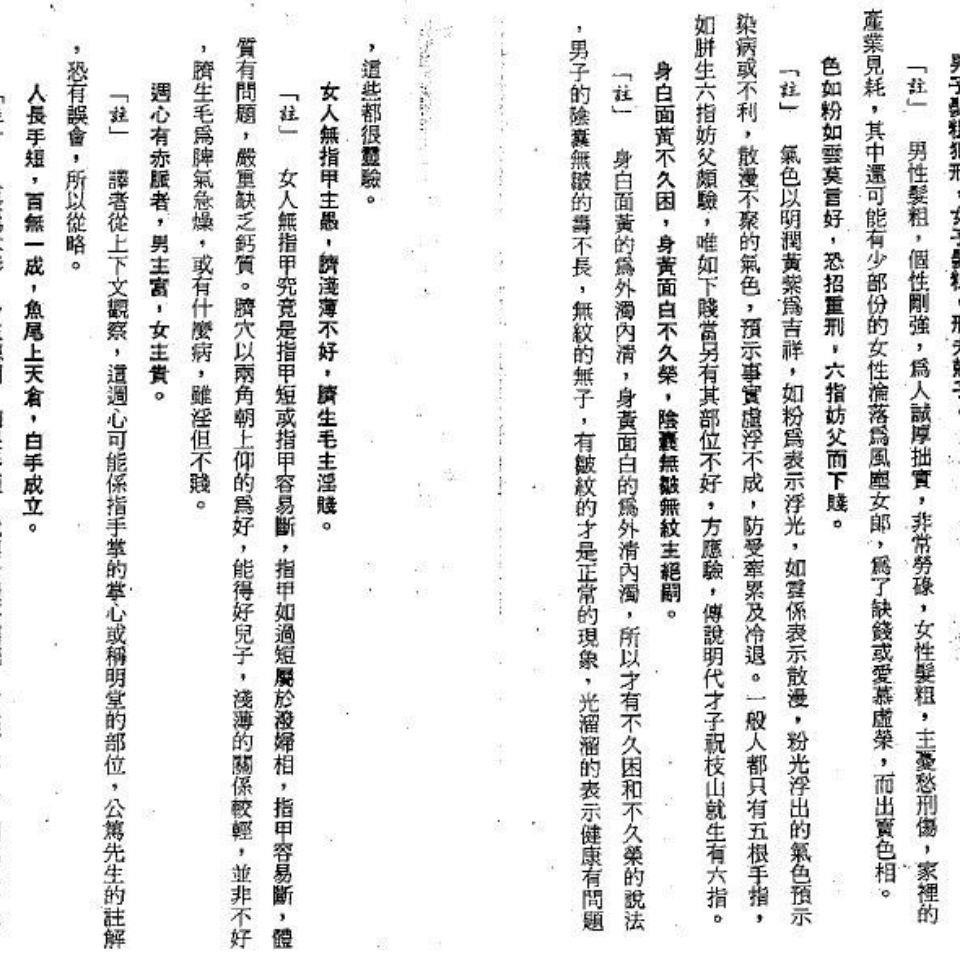 「註」　男性髮粗，個性剛強，爲人誠厚拙實，非常勞碌，女性髮粗，主憂愁刑傷，家裡的
產業見耗，其中還可能有少部份的女性淪落爲風塵女郎，爲了缺錢或愛慕虛榮，而出賣色相。
色如粉如雲莫言好，恐招重刑，六指妨父而下賤。
「註」　氣色以明潤黃紫爲吉祥，如粉爲表示浮光，如雲係表示散漫，粉光浮出的氣色預示
染病或不利，散漫不聚的氣色，預示事實虛浮不成，防受牽累及冷退。一般人都只有五根手指，
如胼生六指妨父頗驗，唯如下賤當另有其部位不好，方應驗，傳說明代才子祝枝山就生有六指。
身白面黃不久困，身黃面白不久榮，陰囊無皺無紋主絕嗣。
「註」　身白面黃的爲外濁內清，身黃面白的爲外清內濁，所以才有不久困和不久榮的說法
，男子的陰囊無皺的壽不長，無紋的無子，有皺紋的才是正常的現象，光溜溜的表示健康有問題
，這些都很靈驗。
女人無指甲主愚，臍淺薄不好，臍生毛主淫賤。
「註」　女人無指甲究竟是指甲短或指甲容易斷，指甲如過短屬於潑婦相，指甲容易斷，體
質有問題，嚴重缺乏鈣質。臍穴以兩角朝上仰的爲好，能得好兒子，淺薄的關係較輕，並非不好
，臍生毛爲脾氣急燥，或有什麼病，雖淫但不賤。
週心有赤脈者，男主富，女主貴。
「註」　譯者從上下文觀察，這週心可能係指手掌的掌心或稱明堂的部位，公篤先生的註解
，恐有誤會，所以從略。
人長手短，百無一成，魚尾上天倉，白手成立。